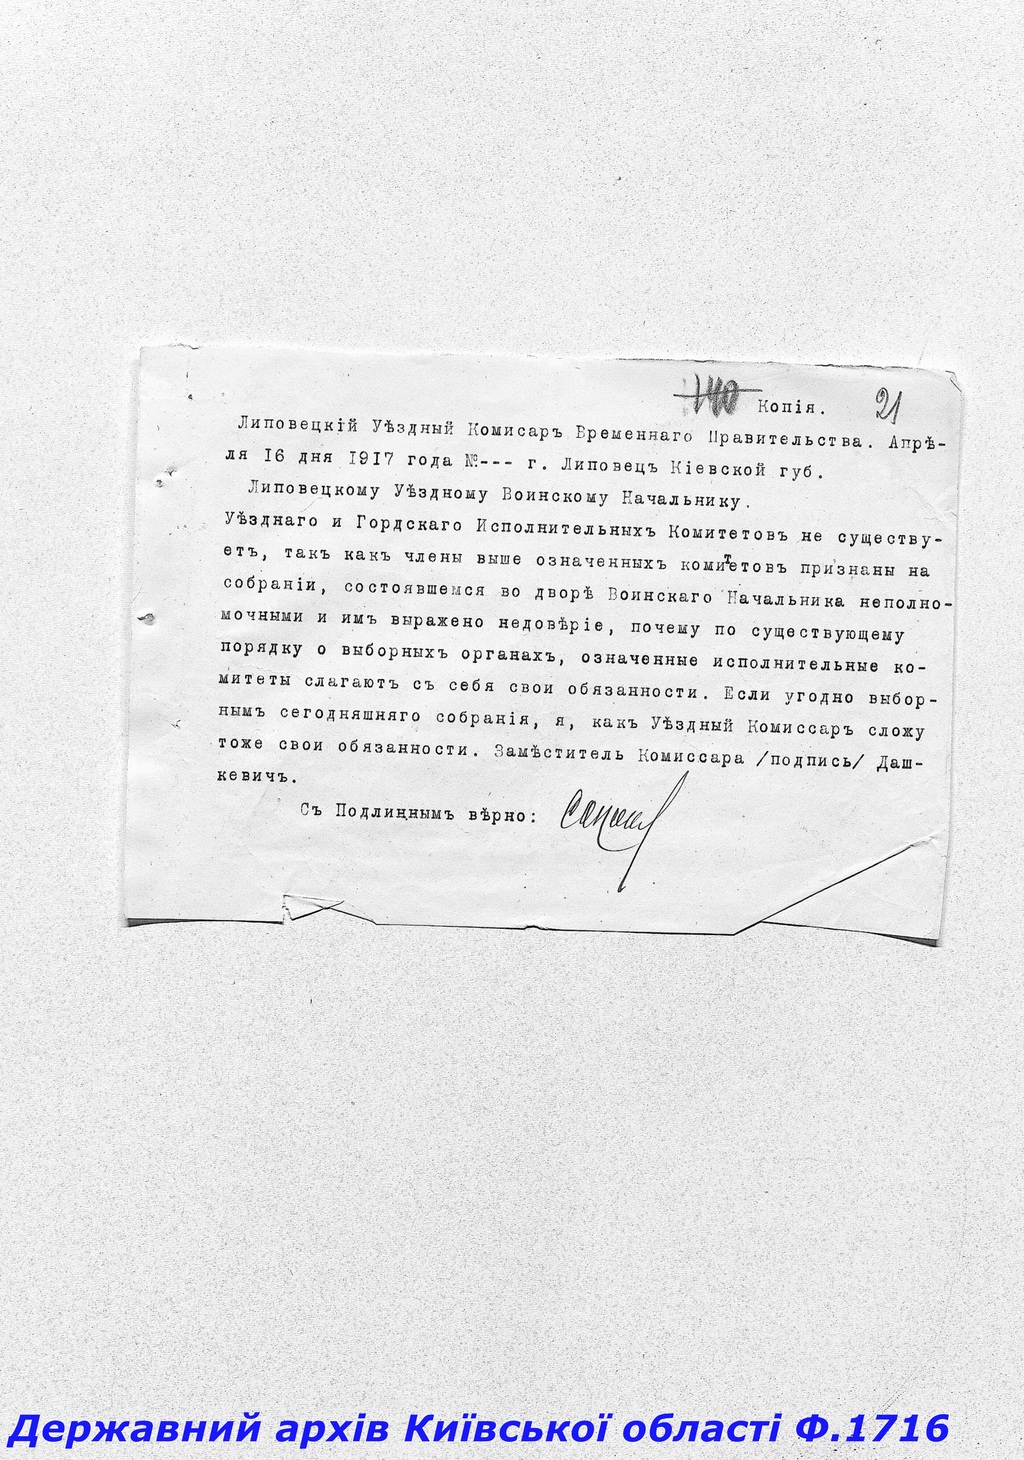 140 Копія. 21
Липовецкій Уѣздный Комисаръ Временнаго Правительства. Апрѣ-
ля 16 дня 1917 года №--- г. Липовецъ Кіевской губ.
Липовецкому Уѣздному Воинскому Начальнику.
Уѣзднаго и Гордскаго Исполнительныхъ Комитетовъ не существу-
етъ, такъ какъ члены выше означенныхъ комитетовъ признаны на
собраніи, состоявшемся во дворѣ Воинскаго Начальника неполно-
мочными и имъ выражено недовѣріе, почему по существующему
порядку о выборныхъ органахъ, означенные исполнительные ко-
митеты слагаютъ съ себя свои обязанности. Если угодно выбор-
нымъ сегодняшняго собранія, я, какъ Уѣздный Комиссаръ сложу
тоже свои обязанности. Замѣститель Комиссара /подпись/ Даш-
кевичъ.
Съ Подлиннымъ вѣрно:
Державний архів Київської області Ф.1716